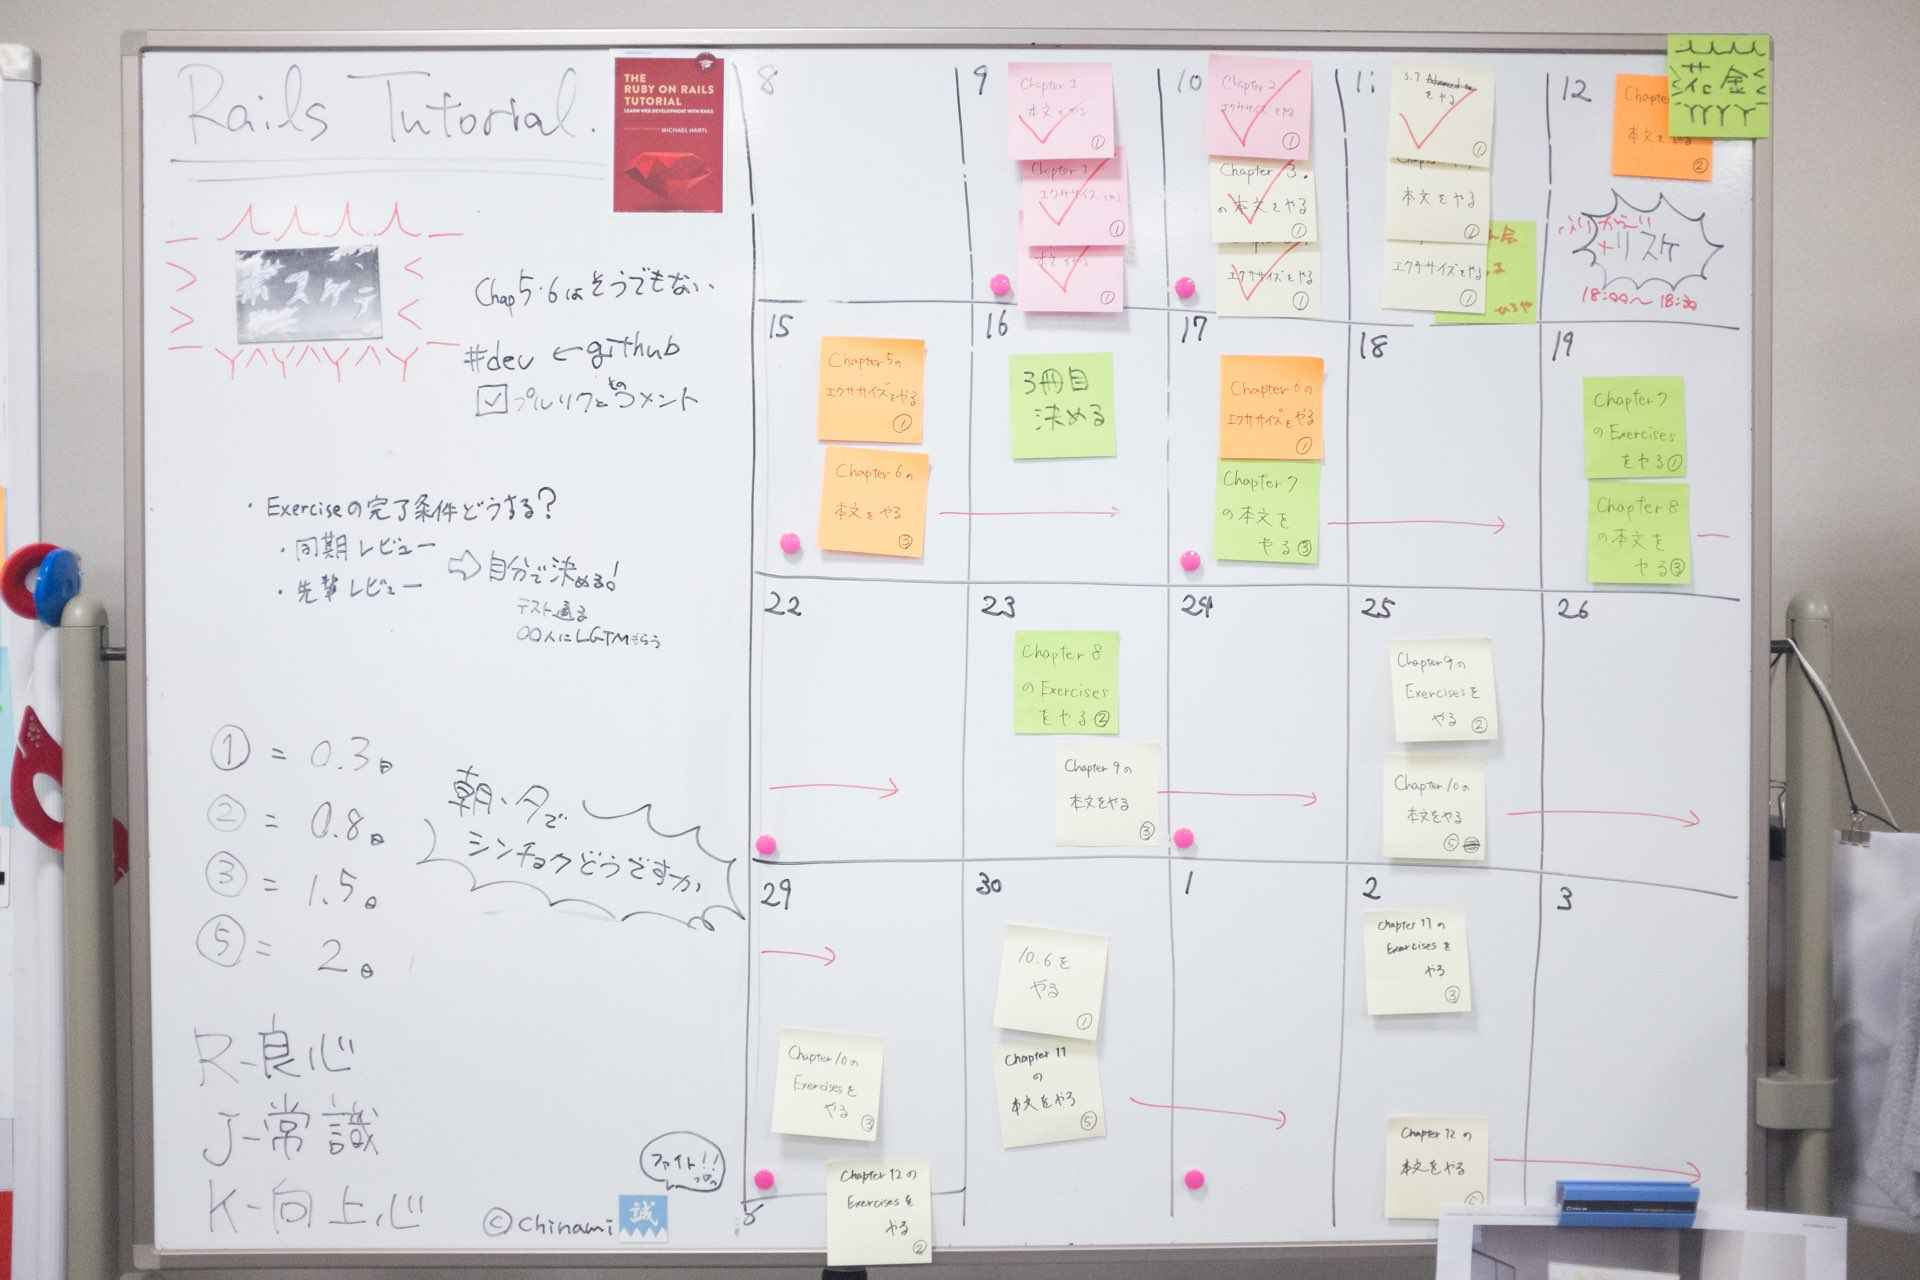 Rails Tutorial.
THE
RUBY ON RAILS
TUTORIAL
LEARN WEB DEVELOPMENT WITH RAILS
MICHAEL HARTL
スケテ
Chap5·6はそうでもない
#dev ←github
☑ プルリクとそのコメント
・Exerciseの完了条件どうする?
・同期レビュー
・先輩レビュー
⇨自分で決める!
テスト通る
○○人にLGTMもらう
① = 0.3日
② = 0.8日
③ = 1.5日
⑤ = 2日
朝・夕で
シンチョクどうですか
R-良心
J-常識
K-向上心
ファイト!!
©Chinami
誠
8
9
Chapter 1
本文をやる
①
Chapter 1
エクササイズをやる
①
本文をやる
①
10
Chapter 2
エクササイズをやる
①
Chapter 3.
の本文をやる
①
エクササイズをやる
①
11
3.7
をやる
①
本文をやる
①
エクササイズをやる
①
12
本文をやる
②
花金
ふりかえり
リスケ
18:00〜18:30
15
Chapter 5の
エクササイズをやる
①
Chapter 6の
本文をやる
③
16
3冊目
決める
17
Chapter 6の
エクササイズをやる
①
Chapter 7
の本文を
やる③
18
19
Chapter 7
のExercises
をやる①
Chapter 8
の本文を
やる③
22
23
Chapter 8
のExercises
をやる②
Chapter 9の
本文をやる
③
24
25
Chapter 9の
Exercisesを
やる②
Chapter 10の
本文をやる
⑤
26
29
Chapter 10の
Exercisesを
やる③
30
10.6を
やる
①
Chapter 11
の
本文をやる
⑤
1
2
Chapter 11の
Exercisesを
やる
③
Chapter 12の
本文をやる
3
5
Chapter 12の
Exercisesを
やる
②